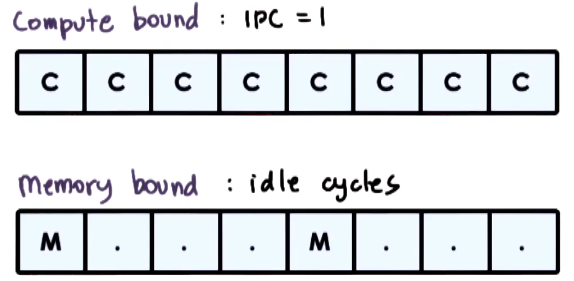 Compute bound : IPC = 1
C C C C C C C C
Memory bound : idle cycles
M . . . M . . .